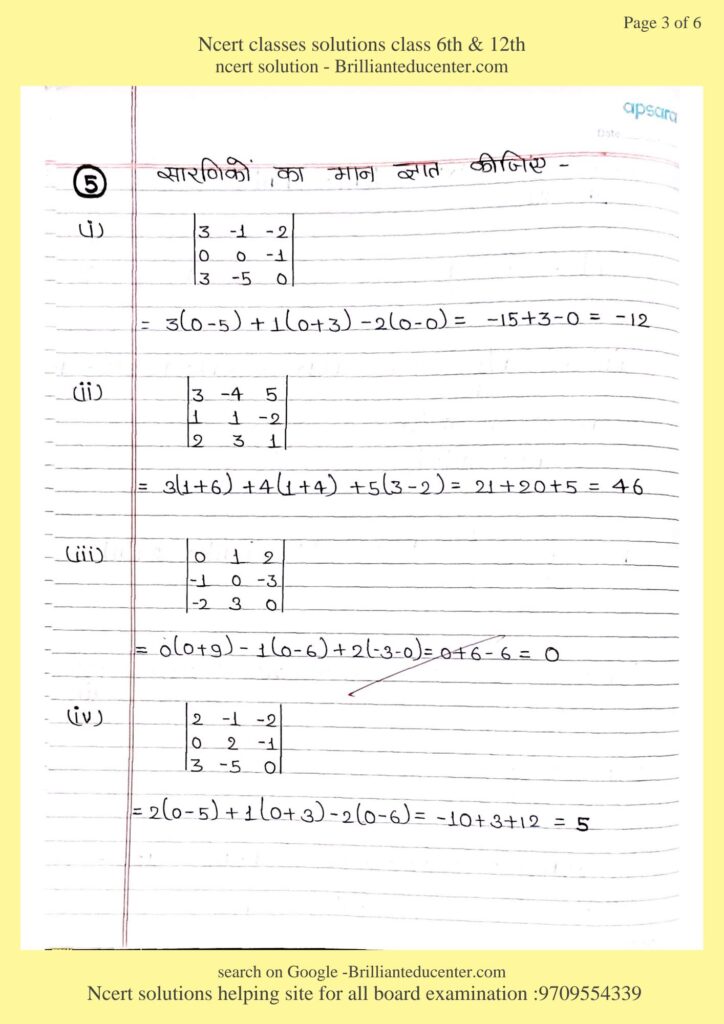 Page 3 of 6
Ncert classes solutions class 6th & 12th
ncert solution - Brillianteducenter.com
apsara
Date
5 सारणिकों का मान ज्ञात कीजिए -
(i) |3 -1 -2|
|0 0 -1|
|3 -5 0|
= 3(0-5) + 1(0+3) -2(0-0) = -15+3-0 = -12
(ii) |3 -4 5|
|1 1 -2|
|2 3 1|
= 3(1+6) +4(1+4) +5(3-2) = 21+20+5 = 46
(iii) |0 1 2|
|-1 0 -3|
|-2 3 0|
= 0(0+9) - 1(0-6)+2(-3-0)= 0+6-6 = 0
(iv) |2 -1 -2|
|0 2 -1|
|3 -5 0|
= 2(0-5)+1(0+3)-2(0-6)= -10+3+12 = 5
search on Google -Brillianteducenter.com
Ncert solutions helping site for all board examination :9709554339